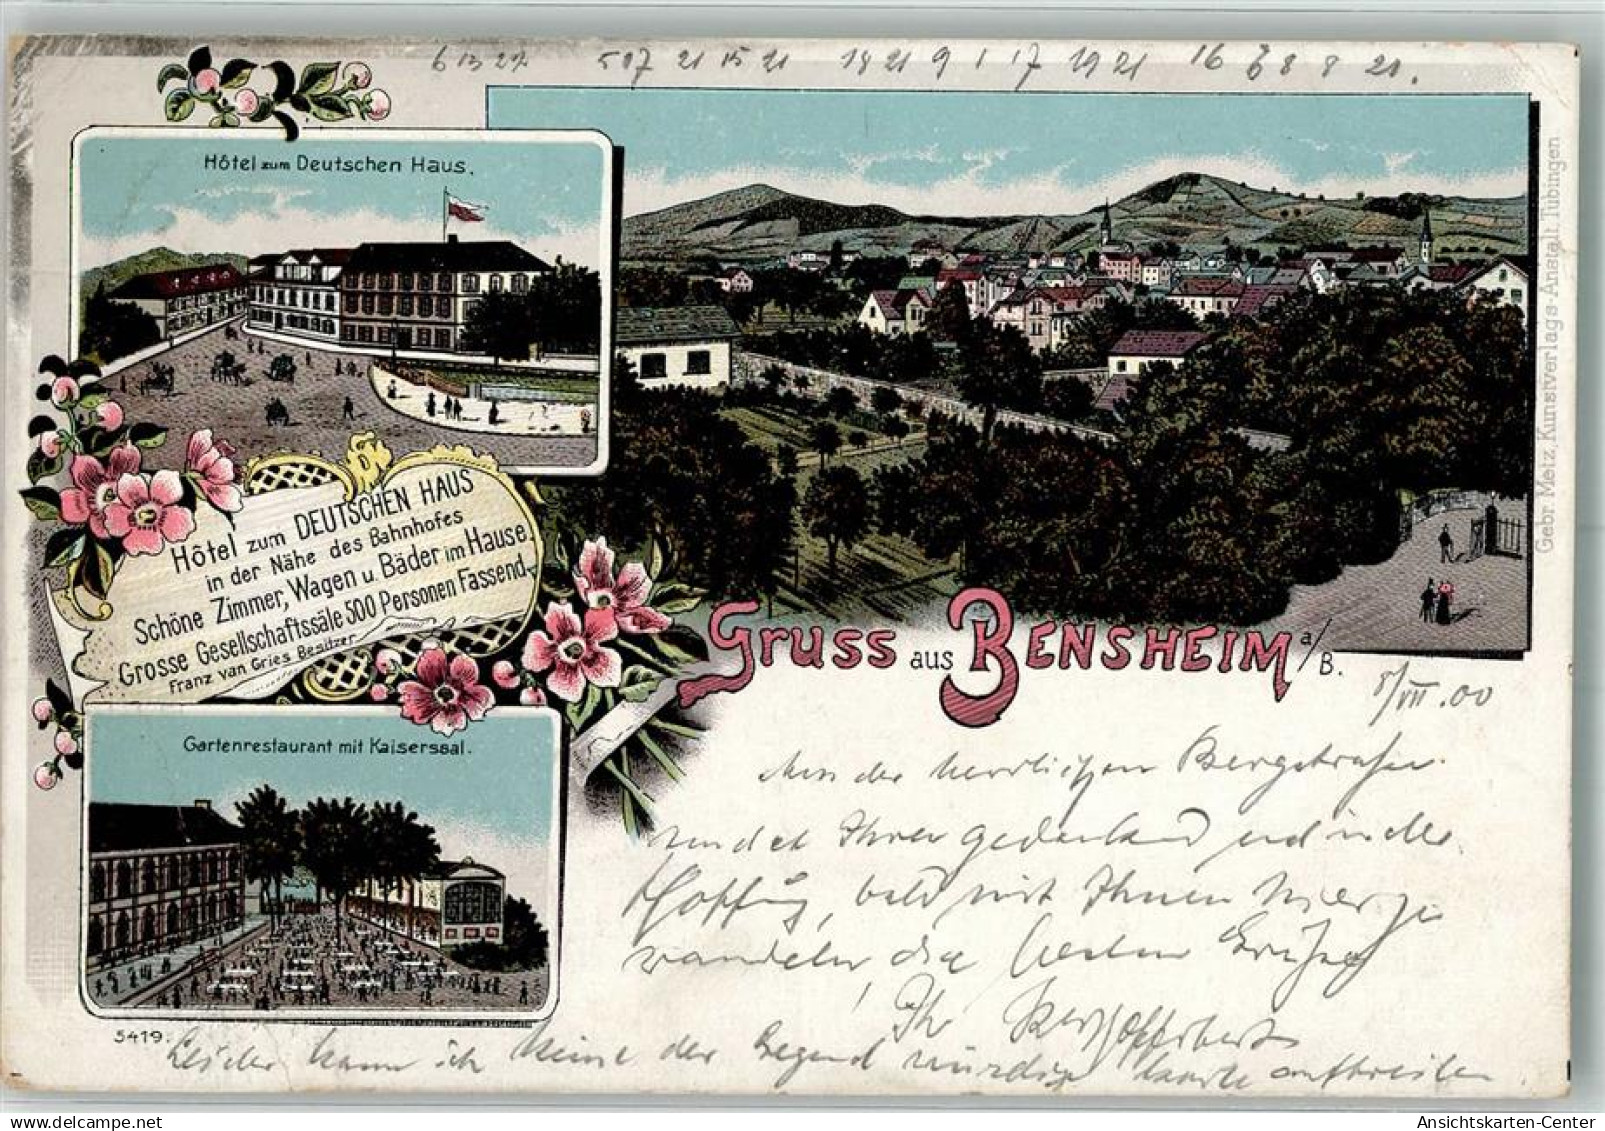 6 13 21 5 17 21 15 21 18 21 9 1 17 19 21 16 8 8 21.
Hôtel zum Deutschen Haus.
Hôtel zum DEUTSCHEN HAUS
in der Nähe des Bahnhofes
Schöne Zimmer, Wagen u. Bäder im Hause.
Grosse Gesellschaftssäle 500 Personen Fassend.
Franz van Gries Besitzer
Gartenrestaurant mit Kaisersaal.
Gruss aus BENSHEIM a/B.
Gebr. Metz, Kunstverlags-Anstalt, Tübingen
8/VII.00
der herrlichen Bergstraße
Ihrer gedenkend und in der
Hoffnung, bald mit Ihnen hier zu
wandeln, die besten Grüße
Ihr
Leider kann ich keine der Gegend würdige Karte auftreiben.
5419.
Ansichtskarten-Center